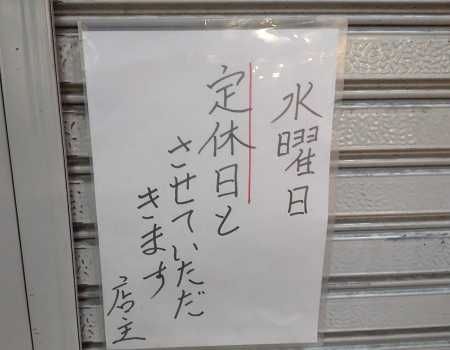 水曜日
定休日と
させていただ
きます
店主